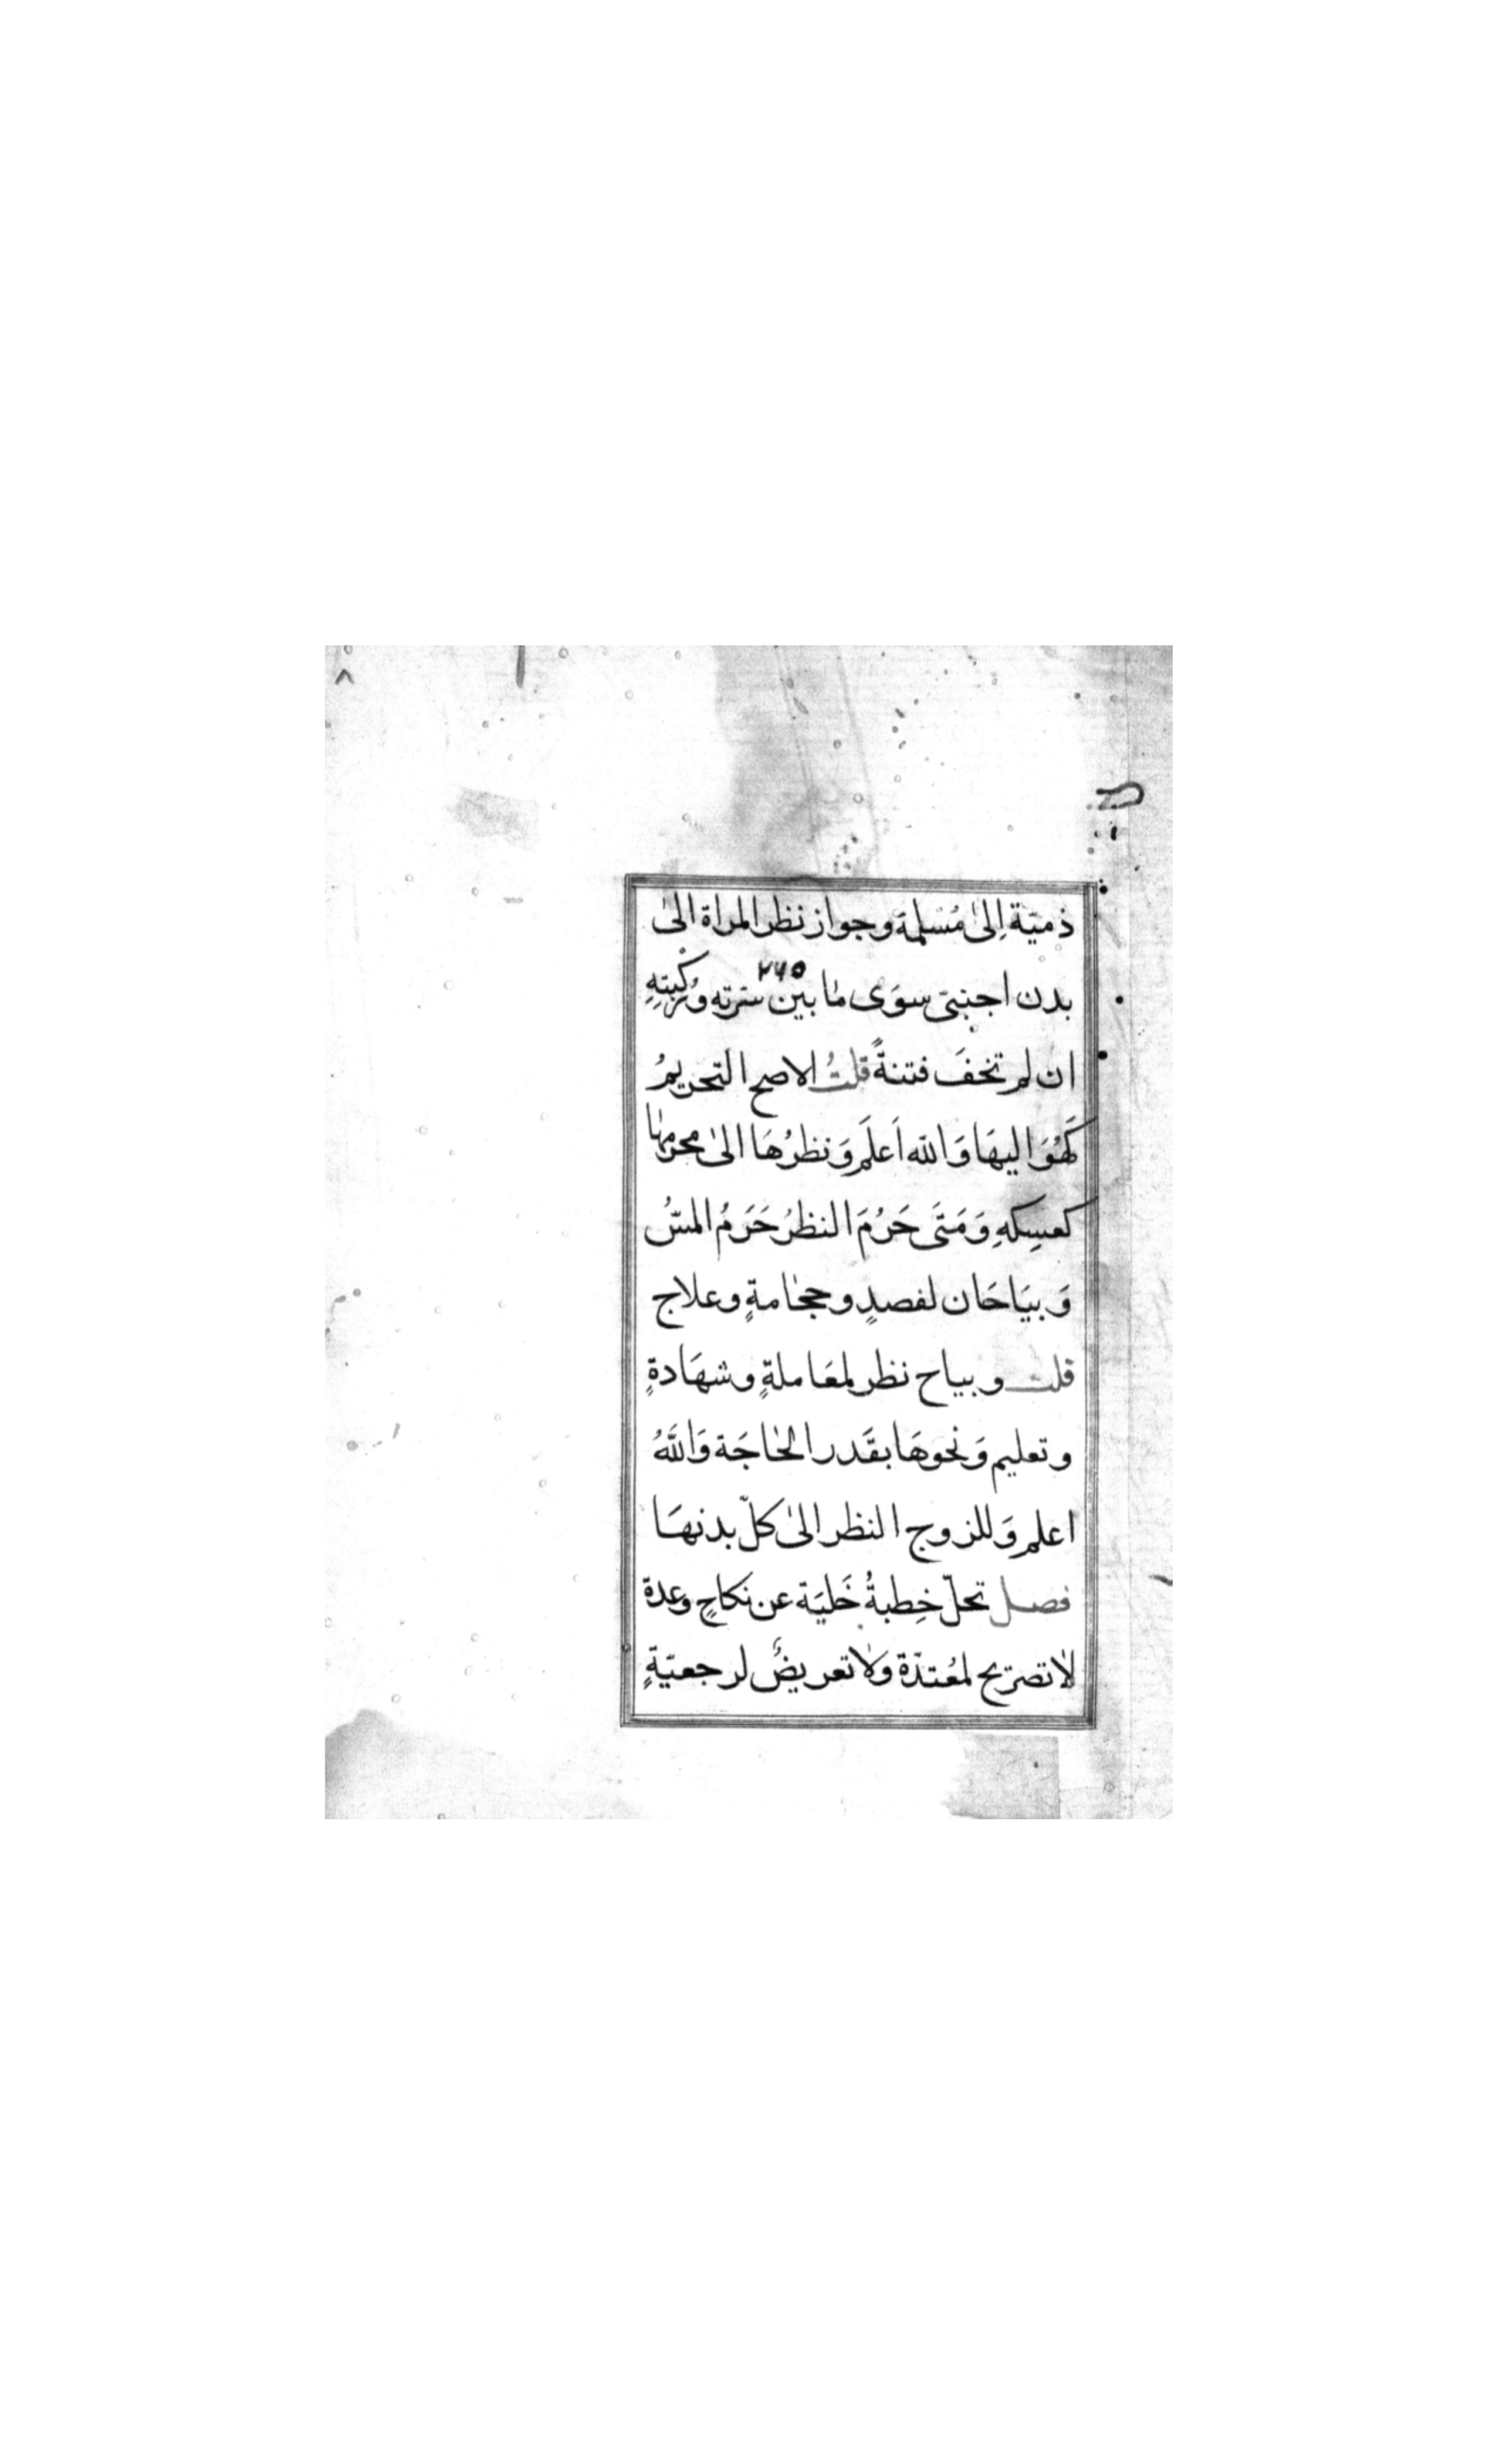 ذميّة إلىٰ مُسلمة وجواز نظر المراة الىٰ
٢٦٥
بدن اجنبىّ سوَى مٰا بين سّرته ورُكْبتِهِ
ان لم تخفَ فتنةً قلتُ الاصح التحريمُ
كَهُوَ اليهَا وَالله اَعلَم وَنظرُهَا الىٰ محرمهٰا
كعسِكهِ وَمَتَى حَرُمَ النظرُ حَرَمُ المسّ
وَبيَاحَان لفصدٍ وحجٰامةٍ وعلاج
قلت وبياح نظر لمعَاملةٍ وشهَادةٍ
وتعليم وَنحوهَا بقَدر الحٰاجَة وَاللهُ
اعلم وَللزوج النظر الىٰ كلّ بدنهَا
فصل تحلّ خِطبةُ خَليَة عن نكاحٍ وعدة
لاٰ تصرّيح لمعُتدّة ولاٰ تعريضٌ لرجعيّةٍ